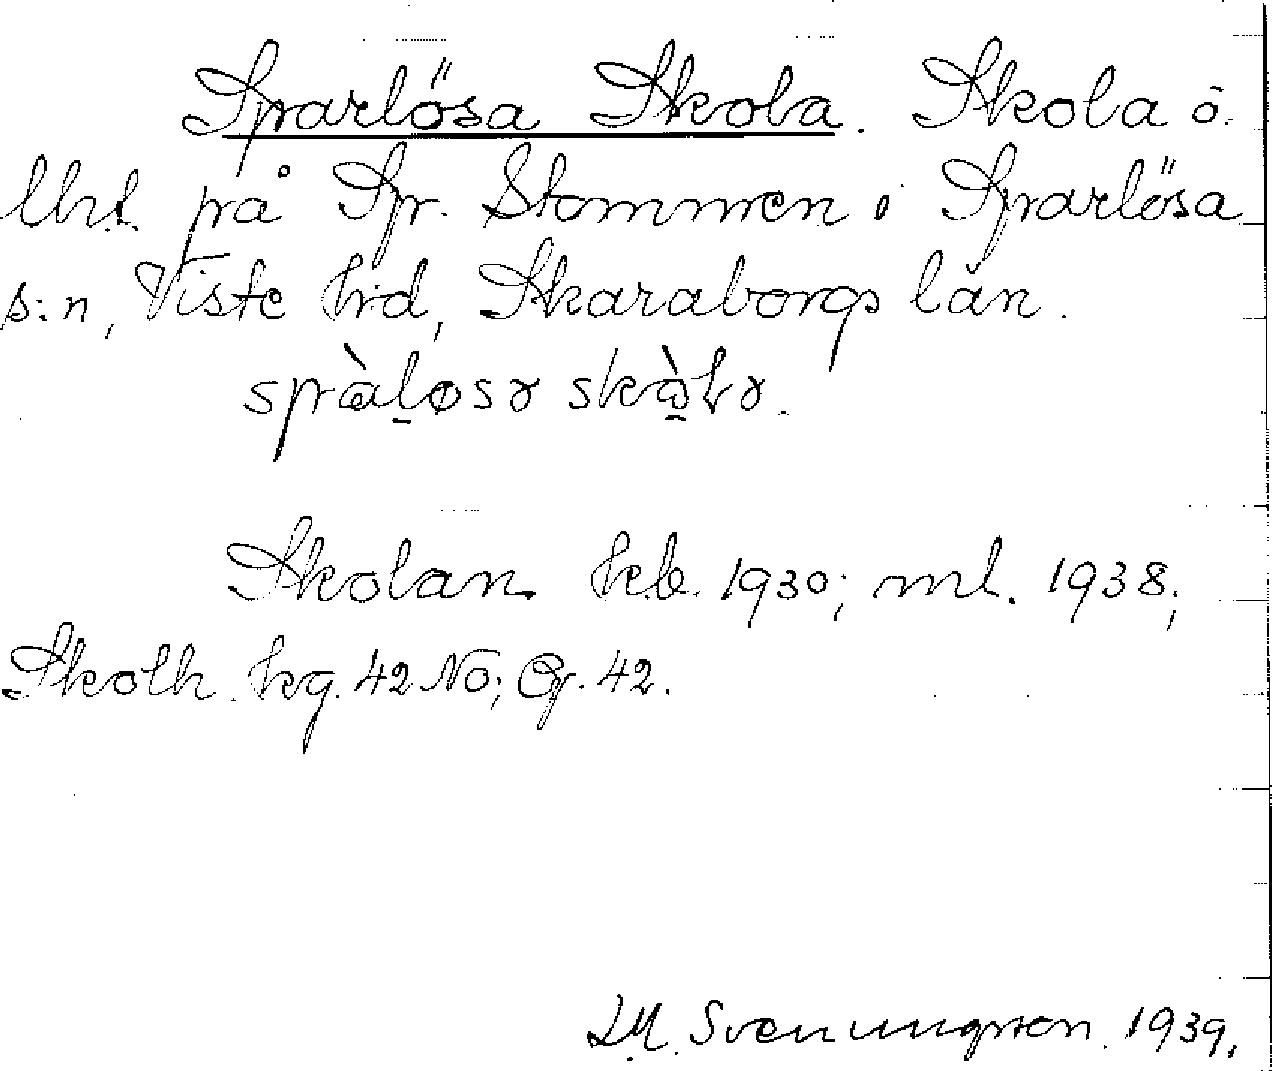 Sparlösa Skola. Skola ö.
lht. på Sp. Stommen i Sparlösa
s:n, Viste hd, Skaraborgs län.
spàḷøsɤ skà̱ɫɤ.
Skolan hcb. 1930; ml. 1938;
Skolh. kg. 42 NO; Gr. 42.
Svenungsson. 1939.